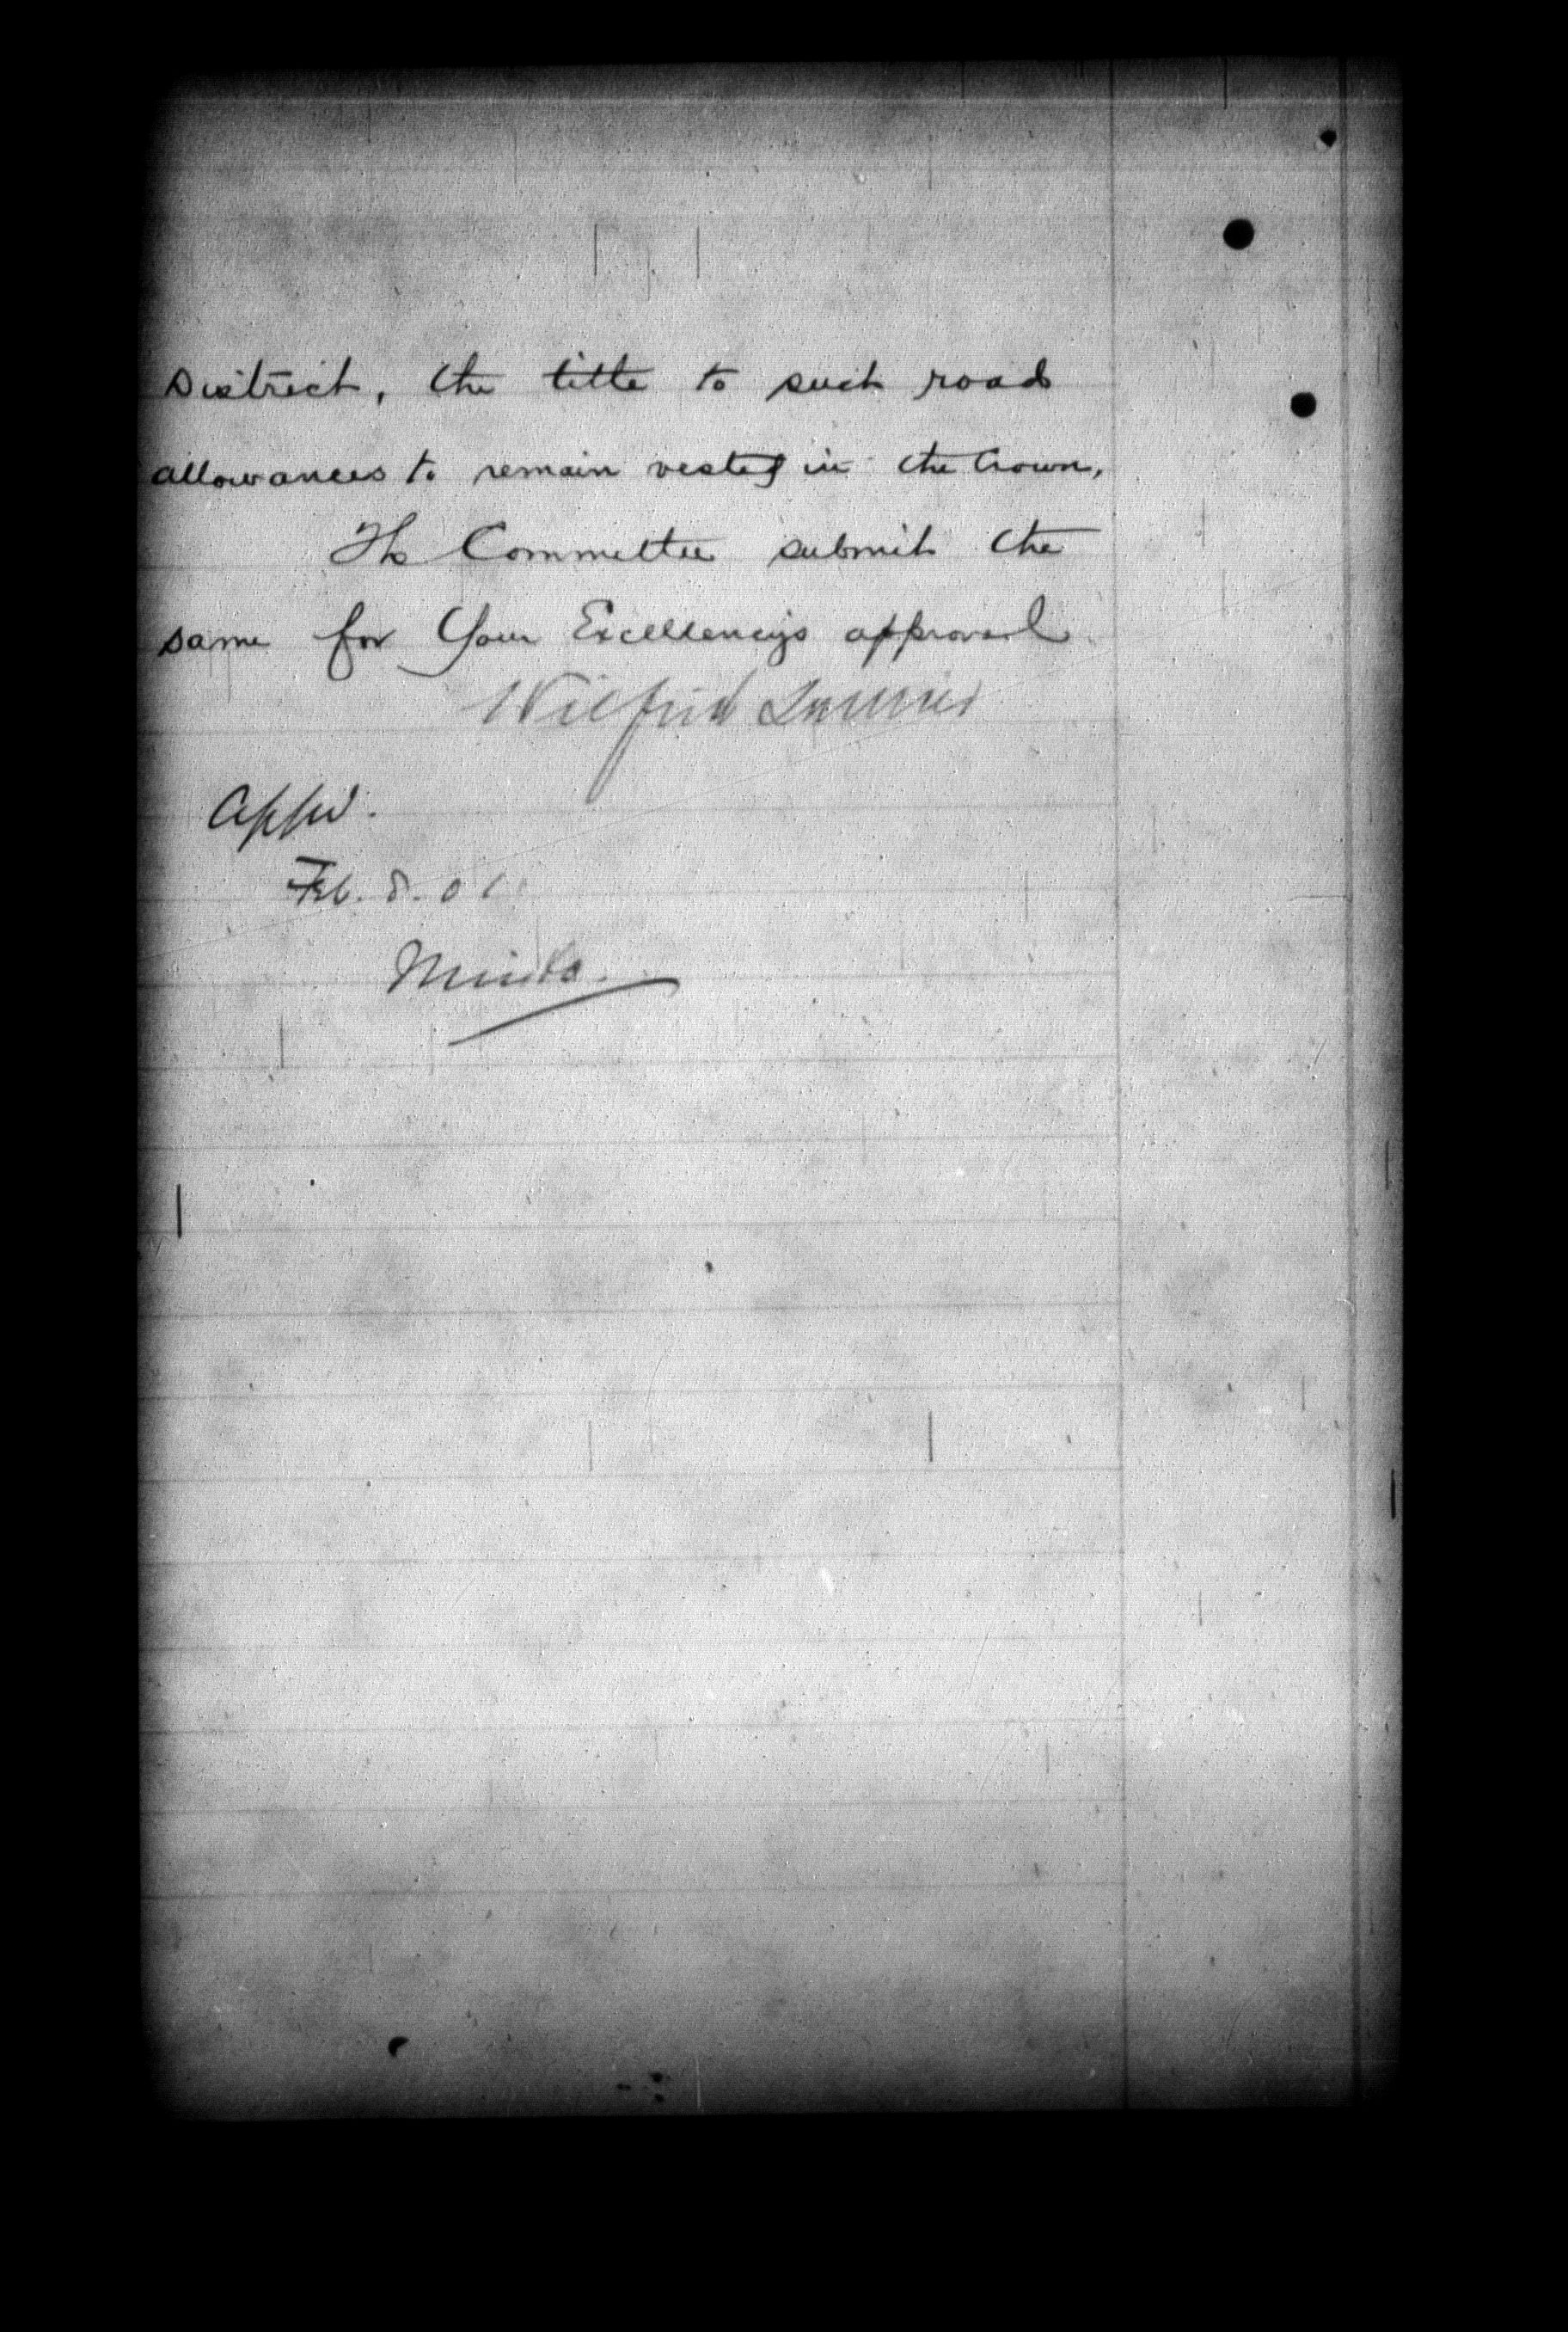 District, the title to such road
allowances to remain vested in the Crown.
The Committee submit the
same for Your Excellency's approval
Wilfrid Laurier
Appd.
Feb. 8. 01
Minto.